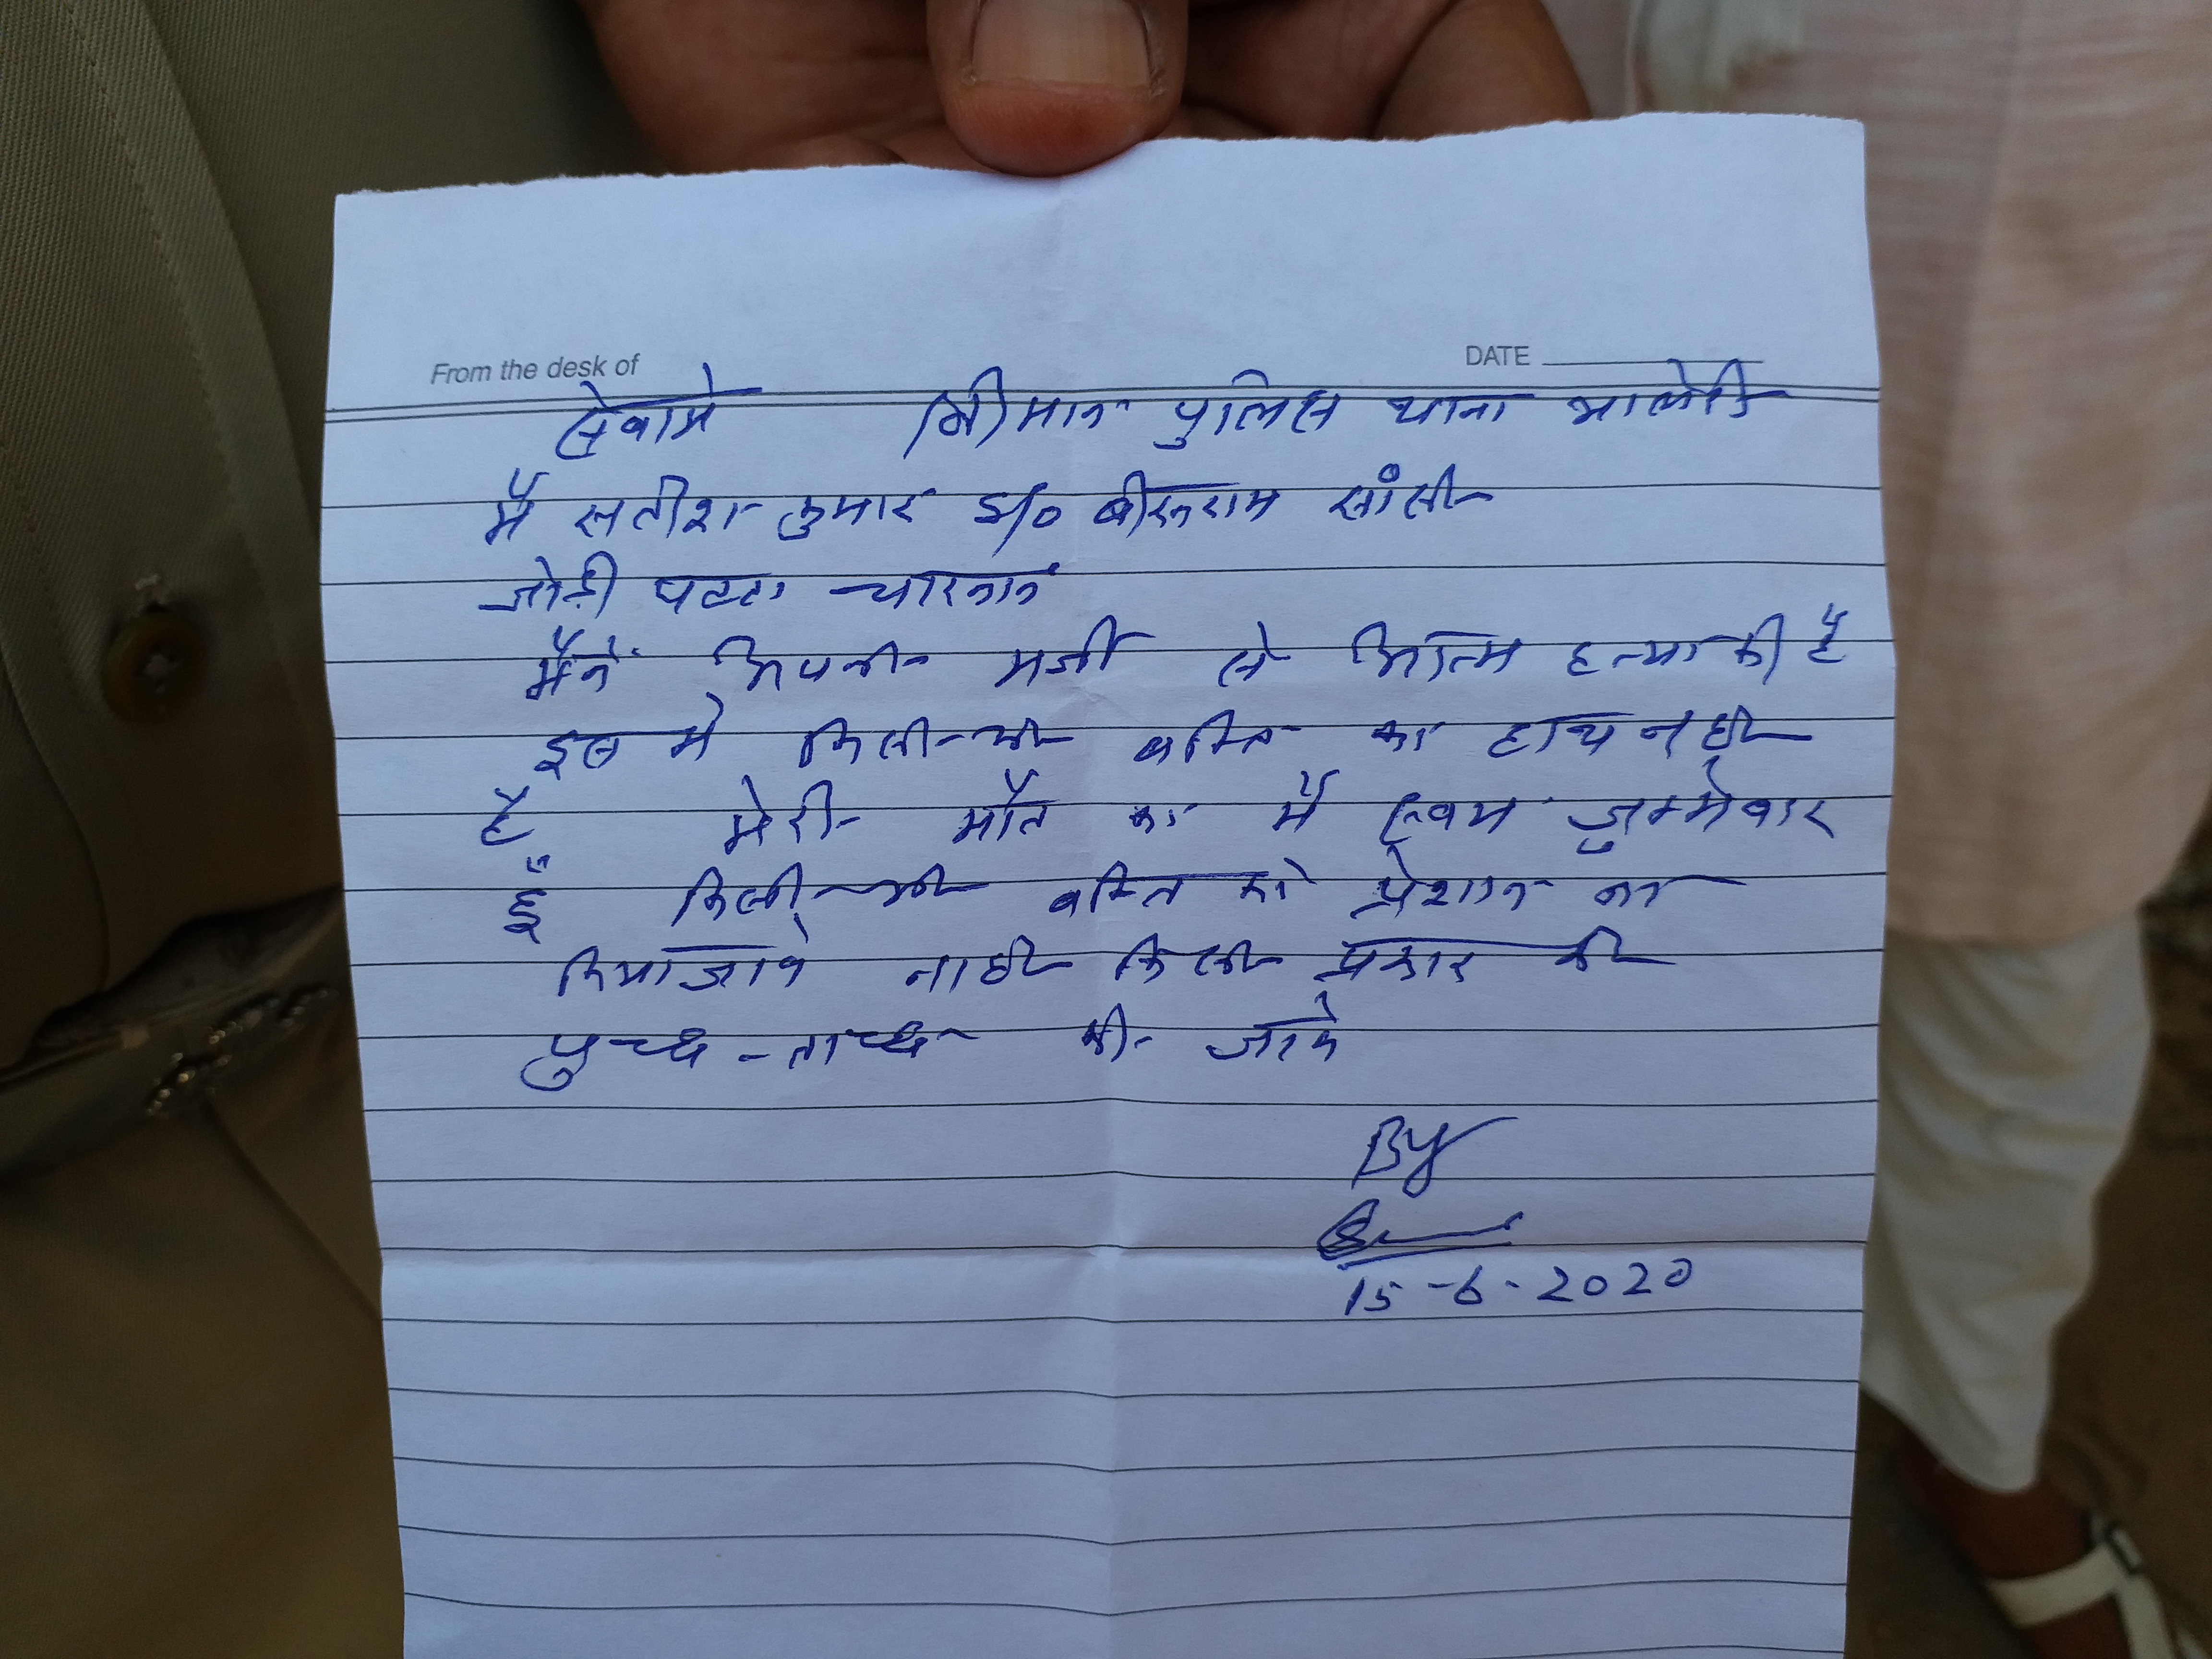 From the desk of DATE
सेवामे श्रीमान पुलिस थाना भालेरी
मैं सतीश कुमार S/o बीरूराम सांसी
जोड़ी पट्टा चारनान
मैंने अपनी मर्जी से आत्म हत्या की है
इस मे किसी भी वक्ति का हाथ नही
है मेरी मौत का मैं स्वयम जुम्मेवार
हूँ किसी भी वक्ति को प्रेशान ना
किया जावे ना ही किसी प्रकार की
पुच्छ-ताच्छ की जावे
By
15-6-2020